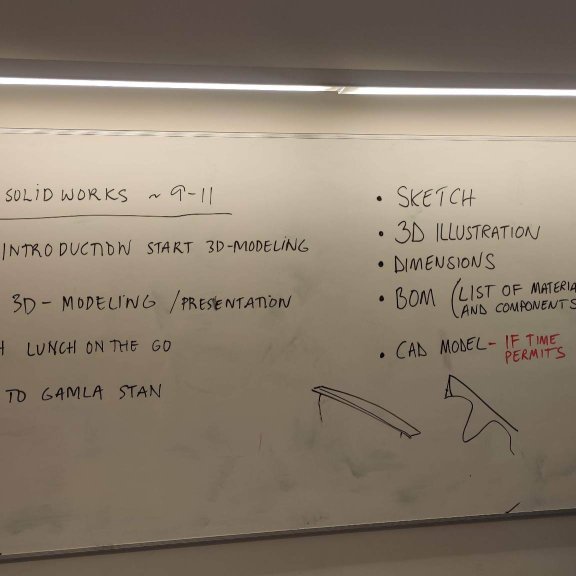 SOLIDWORKS ~ 9-11
INTRODUCTION START 3D-MODELING
3D-MODELING / PRESENTATION
H LUNCH ON THE GO
TO GAMLA STAN
• SKETCH
• 3D ILLUSTRATION
• DIMENSIONS
• BOM (LIST OF MATERIA
AND COMPONENTS
• CAD MODEL - IF TIME
PERMITS